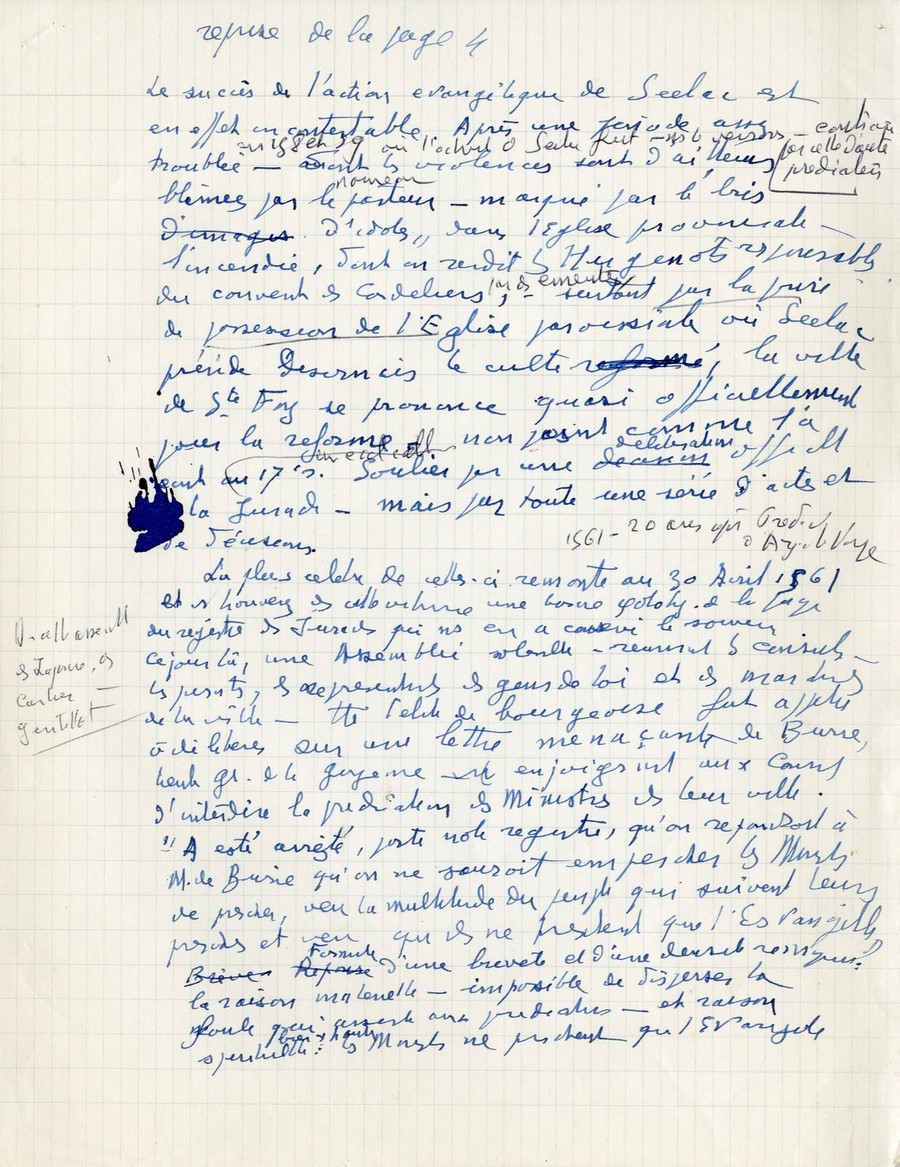 reprise de la page 4
Le succès de l'action evangelique de Seelac est
en effet incontestable. Après une periode assez
en 1558 et 59 où l'action d Seelac
troublée — dont les violences sont d'ailleurs
par cette d'autre
predicateurs
blâmées par le nouveau pasteur — marqué par le bris
d'images d'idoles, dans l'Eglise paroissiale —
l'incendie, dont on rendit ls Huguenots responsables
du couvent des Cordeliers, — surtout par la prise
de possession de l'Eglise paroissiale où Seelac
préside Desormais le culte reformé, la ville
de Ste Foy se prononce quasi officiellement
pour la reforme non point comme l'a
écrit au 17e s. Soulier par une decision deliberation officielle
de la Jurade — mais par toute une série d'actes et
de décisions.
1561 — 20 ans après
La plus celebre de celles-ci remonte au 30 Avril 1561
et v. trouverez une bonne photoc. de la page
du registre des Jurades qui ns en a conservé le souvenir
ce jour là, une Assemblée solennelle — reunissait les consuls —
les jurats, les representants des gens de loi et des marchands
de la ville — tte l'elite de bourgeoisie fut appelée
à délibérer sur une lettre menaçante de Burie,
lieut. Gl. de la Guyenne enjoignant aux Consuls
d'interdire la predication des Ministres ds leur ville.
"A esté arrêté, porte notre registre, qu'on repondroit à
M. de Burie qu'on ne sauroit empescher les Ministres
de prescher, veu la multitude du peuple qui suivent leurs
presches et veu qu'ils ne preschent que l'Evangille"
Brève Reponse Formule d'une brevete et d'une densité remarquable:
la raison materielle — impossible de disperser la
foule qui assiste aux predications — et raison
spirituelle: les Ministres ne prechent que l'Evangile
Cartier —
Gentillet